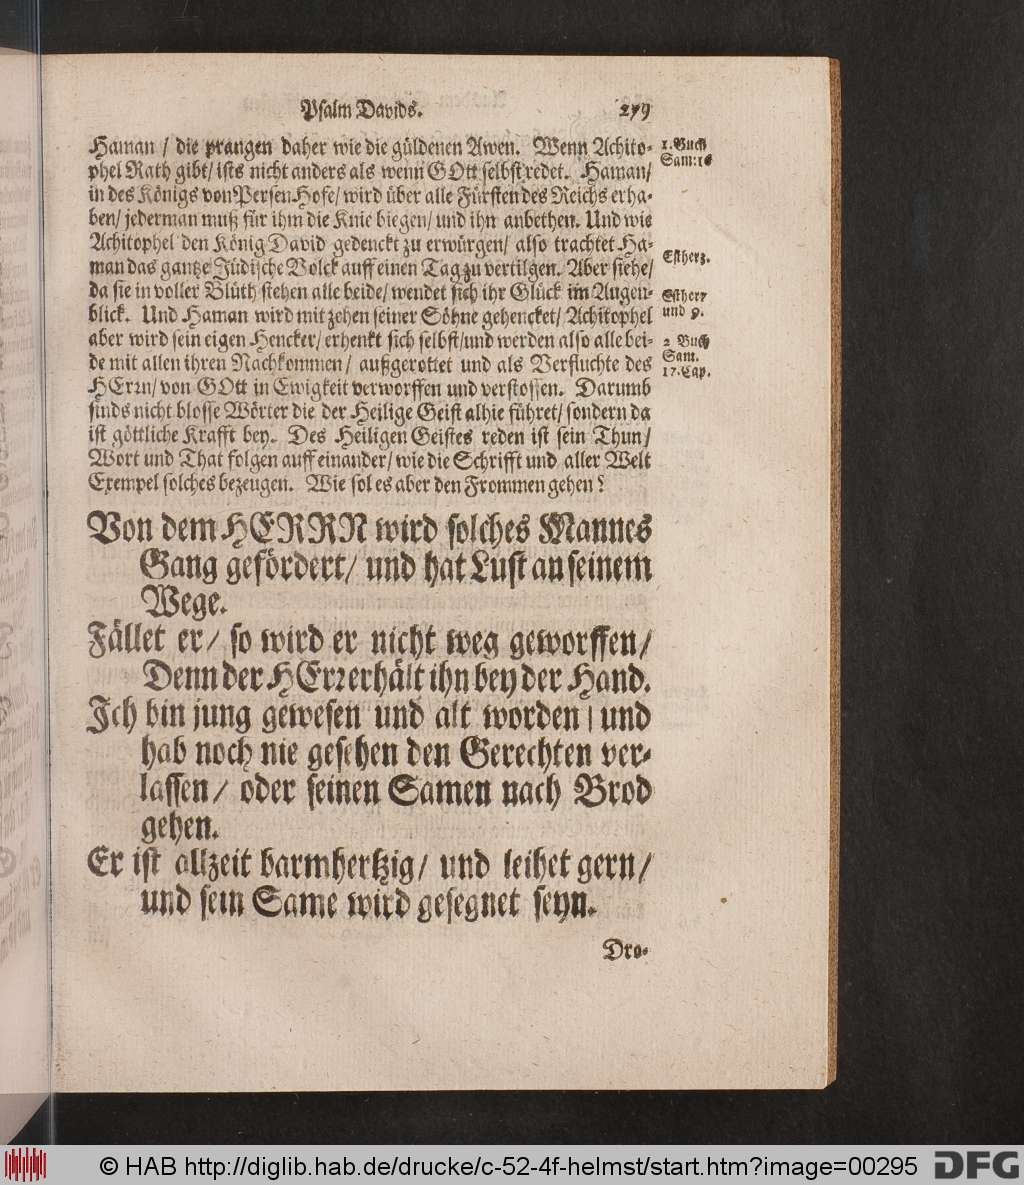 Psalm Davids. 279
Haman / die prangen daher wie die güldenen Awen. Wenn Achito-
phel Rath gibt/ ists nicht anders als wenn GOtt selbst redet. Haman/
in des Königs von Persen Hofe/ wird über alle Fürsten des Reichs erha-
ben/ jederman muß für ihm die Knie biegen/ und ihn anbethen. Und wie
Achitophel den König David gedenckt zu erwürgen/ also trachtet Ha-
man das gantze Jüdische Volck auff einen Tag zu vertilgen. Aber siehe/
da sie in voller Blüth stehen alle beide/ wendet sich ihr Glück im Augen-
blick. Und Haman wird mit zehen seiner Söhne gehencket/ Achitophel
aber wird sein eigen Hencker/ erhenkt sich selbst/ und werden also alle bei-
de mit allen ihren Nachkommen/ außgerottet und als Verfluchte des
HErrn/ von GOtt in Ewigkeit verworffen und verstossen. Darumb
sinds nicht blosse Wörter die der Heilige Geist alhie führet/ sondern da
ist göttliche Krafft bey. Des Heiligen Geistes reden ist sein Thun/
Wort und That folgen auff einander/ wie die Schrifft und aller Welt
Exempel solches bezeugen. Wie sol es aber den Frommen gehen?
1. Buch
Sam: 16
Esther 3.
Esther 7
und 9.
2 Buch
Sam.
17. Cap.
Von dem HERRN wird solches Mannes
Gang gefördert/ und hat Lust an seinem
Wege.
Fället er/ so wird er nicht weg geworffen/
Denn der HErr erhält ihn bey der Hand.
Ich bin jung gewesen und alt worden / und
hab noch nie gesehen den Gerechten ver-
lassen/ oder seinen Samen nach Brod
gehen.
Er ist allzeit barmhertzig/ und leihet gern/
und sein Same wird gesegnet seyn.
Dro-
© HAB http://diglib.hab.de/drucke/c-52-4f-helmst/start.htm?image=00295 DFG